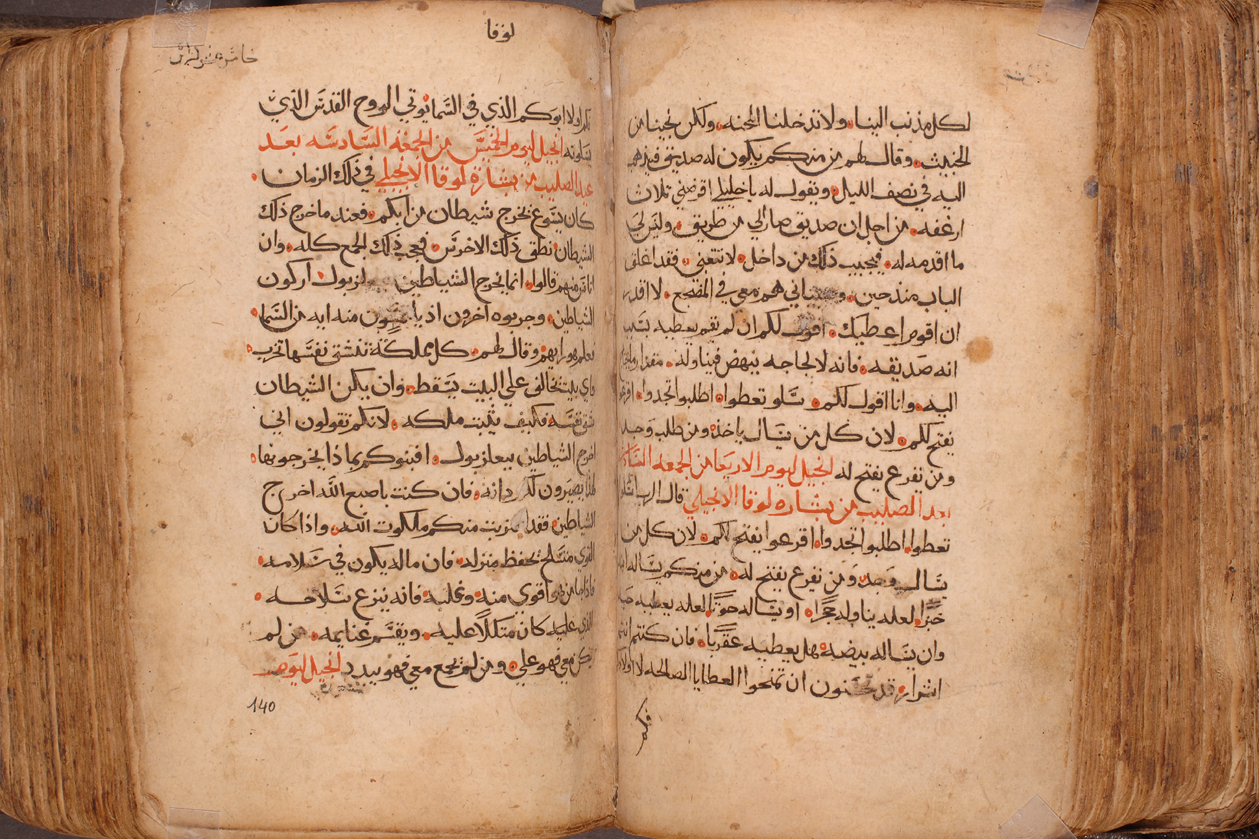 لكل مذنب الينا ولا تدخلنا المحنه ولكن نجينا من
الخبيث وقال لهم من منكم يكون له صديق فيذهب
اليه في نصف الليل ويقول له يا خليلي اقرضني ثلاث
ارغفه من اجل ان صديق صار الي من طريق وليس لي
ما اقدمه له فيجيب ذلك من داخل لا تتعبني فقد اغلق
الباب منذ حين وصبياني هم معي في المضجع لا اقدر
ان اقوم اعطيك اقول لكم ان لم يقم يعطيه
انه صديقه فانه لا لجاجه ينهض فيناوله مقدار
اليه وانا اقول لكم سلو تعطوا اطلبوا تجدوا
يفتح لكم لان كل من يسال ياخذ ومن طلب وجد
ومن يقرع يفتح له انجيل ليوم الاربعا من الجمعه
بعد الصليب من بشاره لوقا الانجيلي قال الرب
تعطوا اطلبوا تجدوا اقرعوا يفتح لكم لان كل من
يسال وجد ومن يقرع يفتح له من منكم يساله
خبزا لعله يناوله حجرا او يساله حوتا لعله يعطيه
وان يساله بيضه هل يعطيه عقربا فان كنتم انتم
اشرار قد تحسنون ان تمنحوا العطايا الصالحه لاولادكم
فكم
لوقا
فكم اولا ابوكم الذي في السما يوتي الروح القدس الذين
يسلونه انجيل ليوم الخميس من الجمعه السادسه بعد
عيد الصليب من بشارة لوقا الانجيلي في ذلك الزمان
كان يسوع يخرج شيطان من ابكم فعند ما خرج ذلك
الشيطان نطق ذلك الاخرس فعجب ذلك الجمع كله وان
اناس منهم قالوا انما يخرج الشياطين ببعلزبول اركون
الشياطين وجربوه اخرون اذ يلتمسون منه ايه من السما
فعلم هو رايهم وقال لهم كل مملكة تنشق نفسها تخرب
واي بيت تخالف علي البيت يسقط وان يكن الشيطان
شق نفسه فكيف تثبت ملكه لانكم تقولون اني
اخرج الشياطين ببعلزبول افبنوكم بماذا يخرجوها
لهذا يصيرون لكم دانه فان كنت باصبع الله اخرج
الشياطين فقد قربت منكم ملكوت الله واذا كان
القوي متسلح يحفظ منزله فان ماله يكون في سلامه
فاذا من هو اقوي منه وغلبه فانه ينزع سلاحه
الذي عليه كان متكلا عليه ويقسم غنايمه من لم
يكن معي فهو علي ومن لم يجمع معي فهو يبدد انجيل ليوم
140